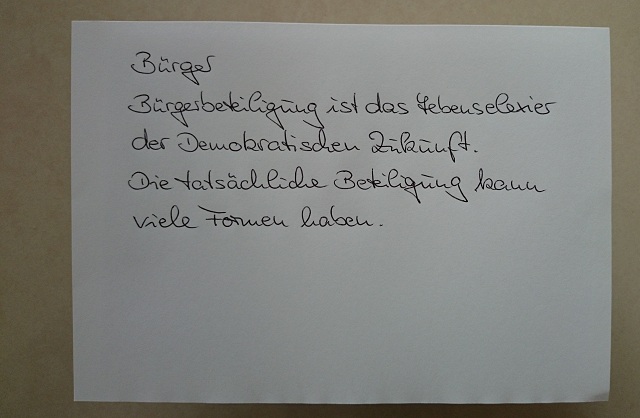 Bürger
Bürgerbeteiligung ist das Lebenselexier
der Demokratischen Zukunft.
Die tatsächliche Beteiligung kann
viele Formen haben.